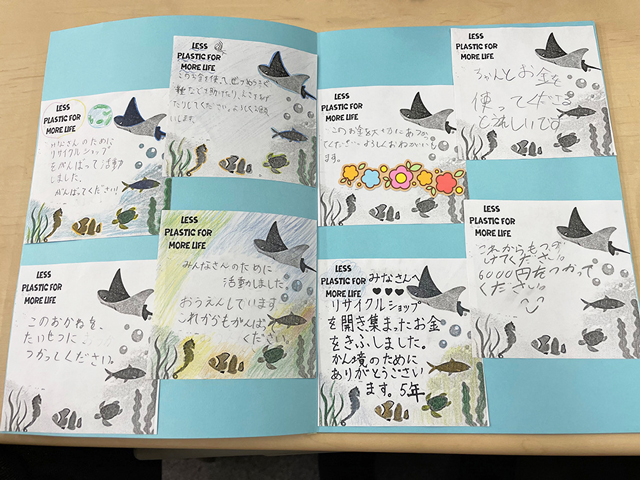 LESS
PLASTIC FOR
MORE LIFE
みなさんのために
リサイクルショップ
をがんばって活動
しました。
がんばってください!
LESS
PLASTIC FOR
MORE LIFE
このお金を使って
助けたり
してください。よろしくお願
いします。
LESS
PLASTIC FOR
MORE LIFE
このおかねを、
たいせつに、
つかってください。
LESS
PLASTIC FOR
MORE LIFE
みんなさんのために
活動しました。
おうえんしています
これからもがんばって
ください。
LESS
PLASTIC FOR
MORE LIFE
このお金を大切に
ください よろしくおねがいし
ます。
LESS
PLASTIC FOR
MORE LIFE
ちゃんとお金を
使ってくださる
とうれしいです
LESS
PLASTIC FOR
MORE LIFE
みなさんへ
リサイクルショップ
を開き集まったお金
をきふしました。
かん境のために
ありがとうござい
ます。5年
LESS
PLASTIC FOR
MORE LIFE
これからもつづ
けてください。
6000円をつかって
ください。